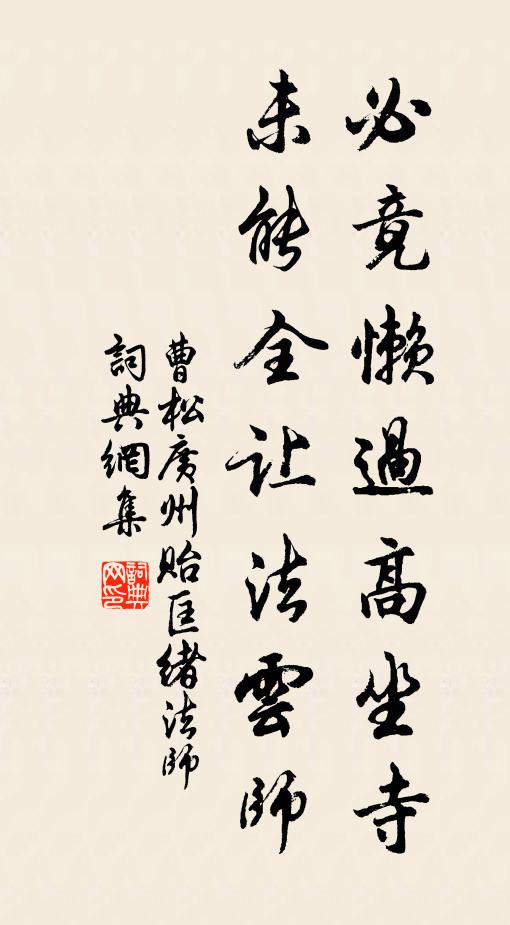 必竟懶過高坐寺
未能全让法雲師
曹松廣州貽匡緒法師
詞典網集
詞典网印